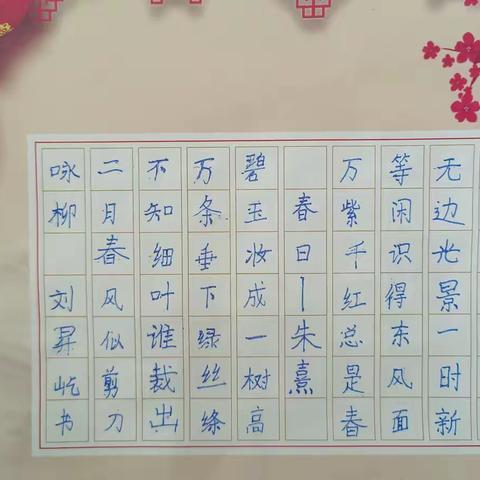 无边光景一时新
等闲识得东风面
万紫千红总是春
春日|朱熹
碧玉妆成一树高
万条垂下绿丝绦
不知细叶谁裁出
二月春风似剪刀
咏柳 刘昇屹书